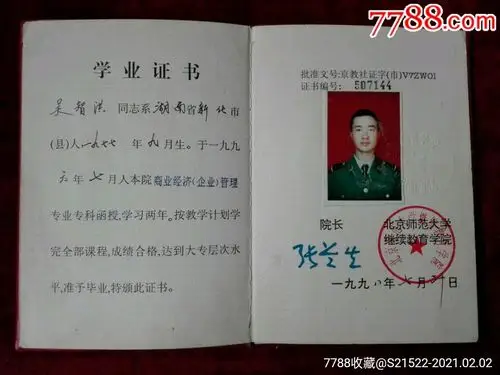 7788.com
学业证书
吴智洪 同志系湖南省新化市
(县)人一九七七年九月生。于一九九
六年七月入本院商业经济(企业)管理
专业专科函授,学习两年。按教学计划学
完全部课程,成绩合格,达到大专层次水
平,准予毕业,特颁此证书。
批准文号:京教社证字(市)V7ZW01
证书编号: 507144
院长
北京师范大学
继续教育学院
一九九八年七月 日
7788收藏@S21522-2021.02.02